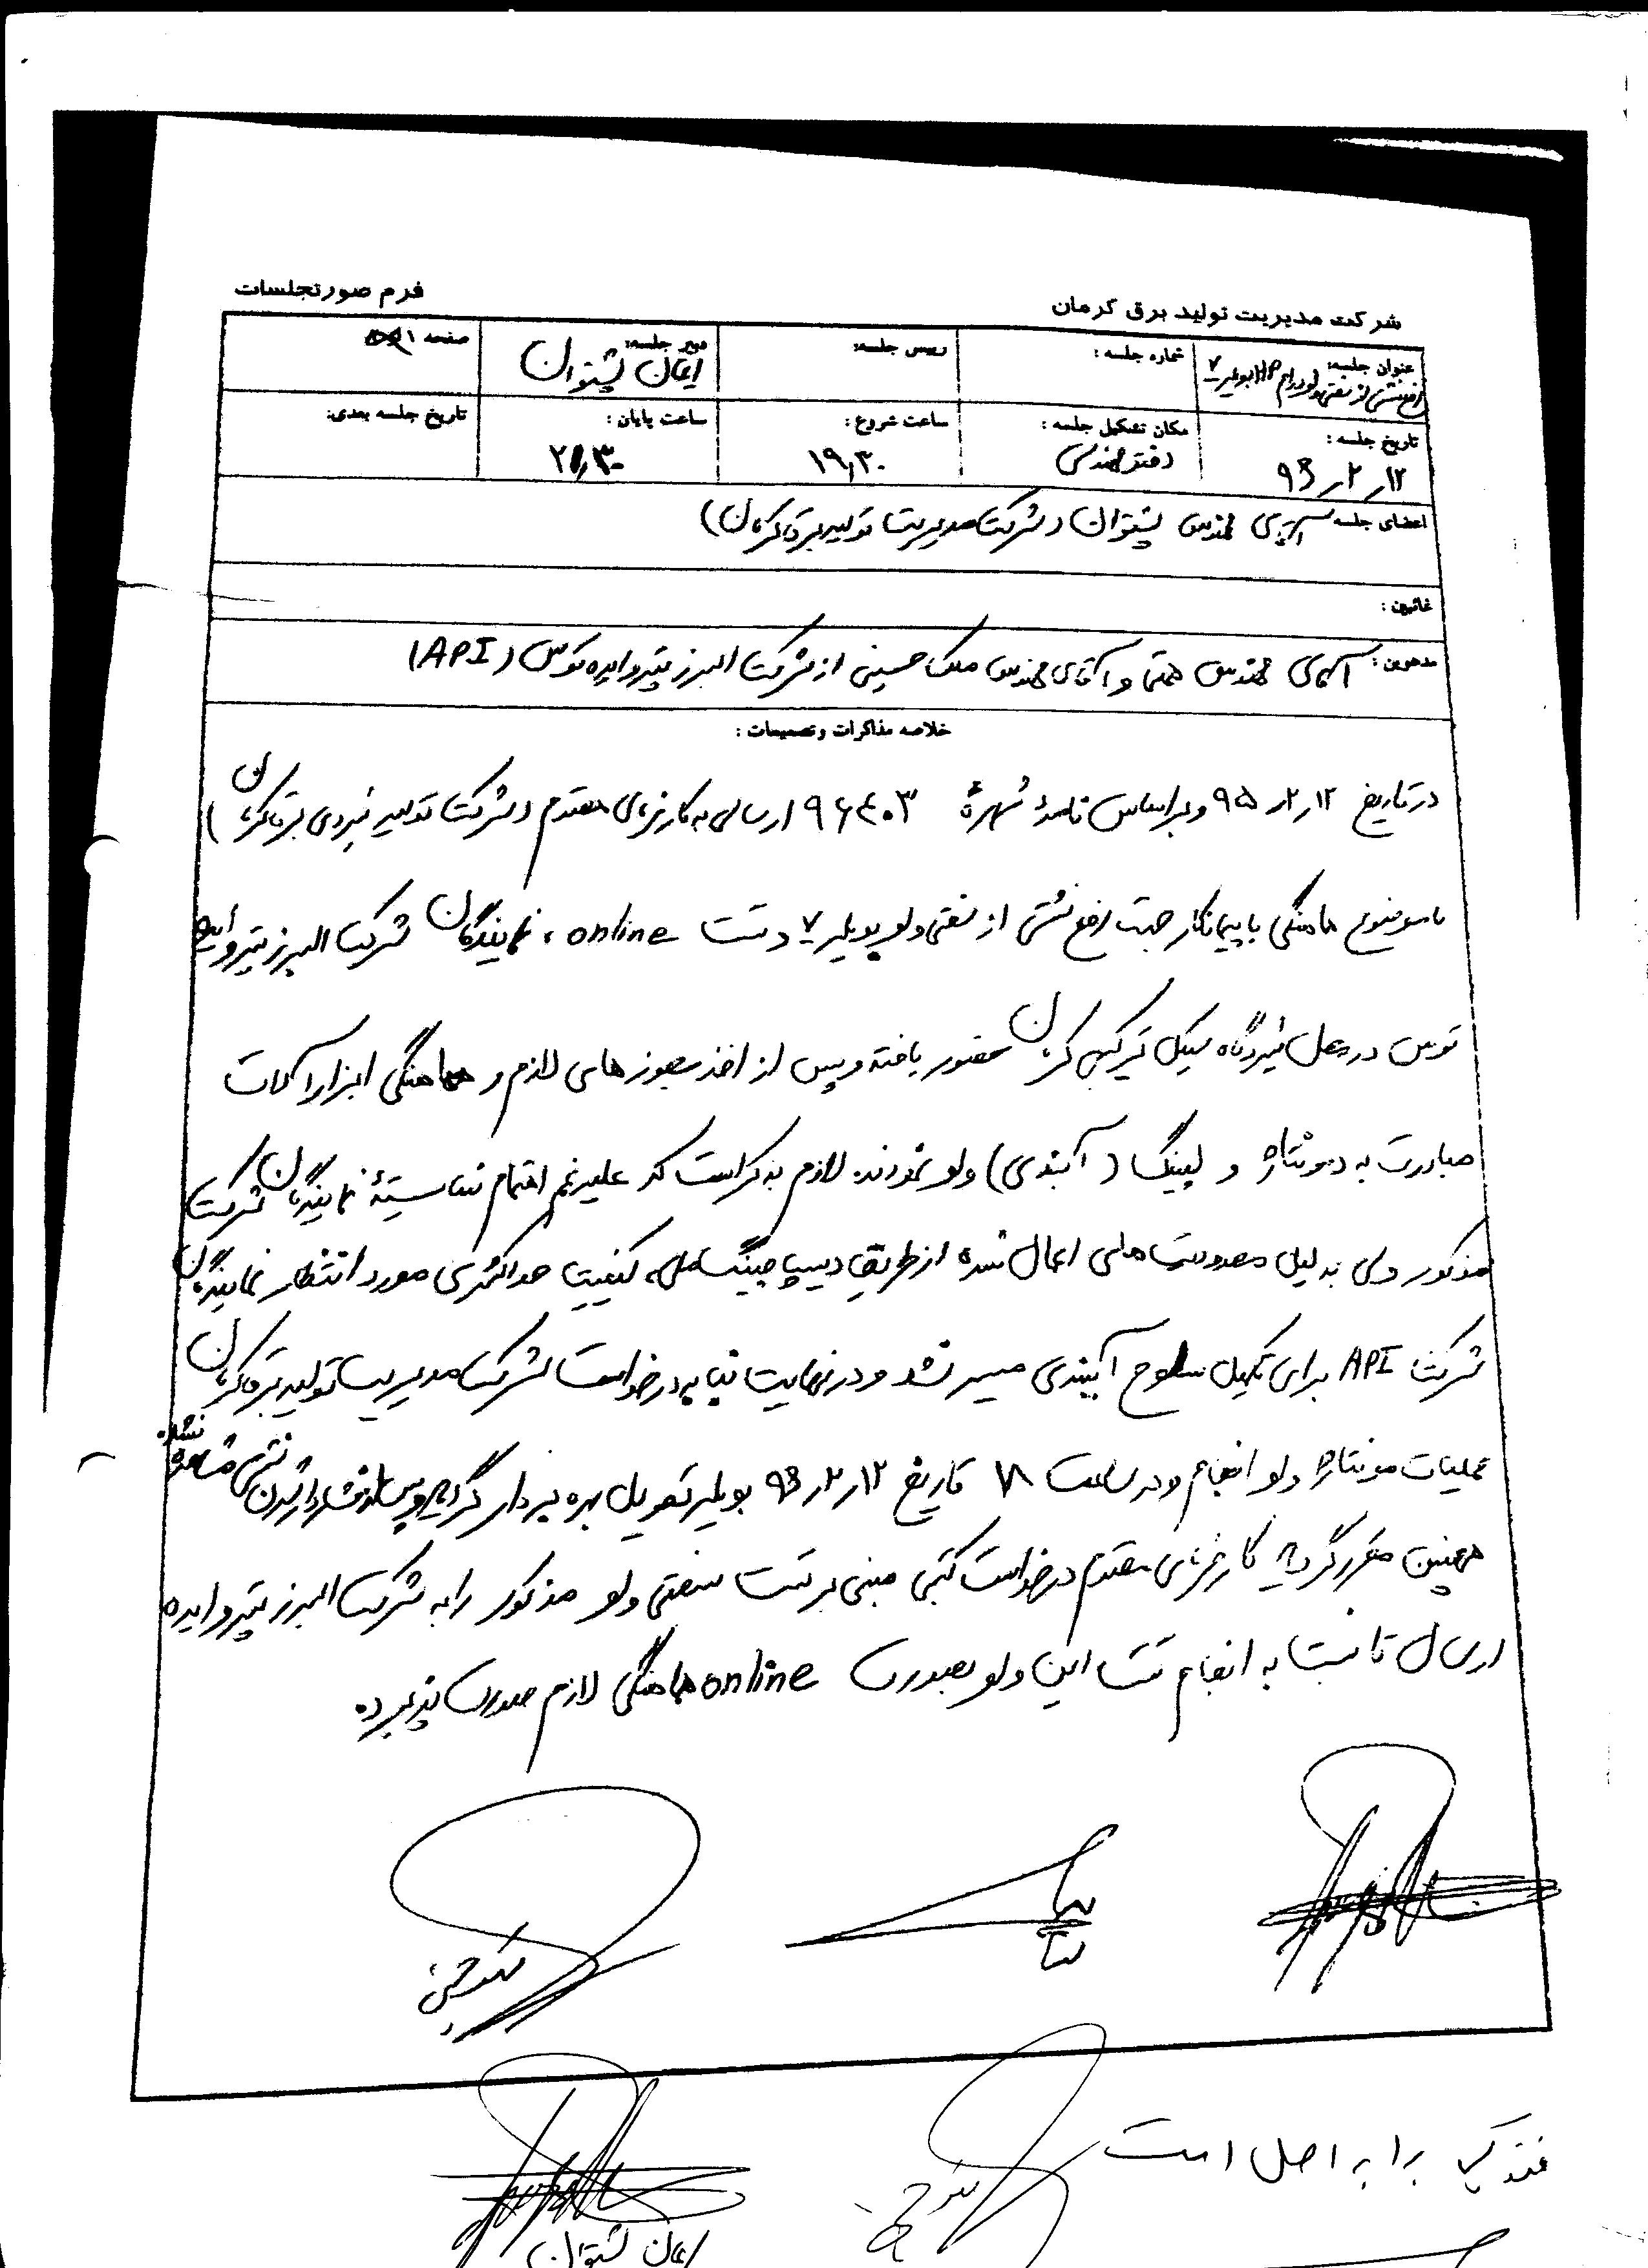 فرم صورتجلسات
شرکت مدیریت تولید برق کرمان
عنوان جلسه: رفع نشتی از سفتی ولو درام HP بویلر ۷
شماره جلسه:
رییس جلسه:
دبیر جلسه: ایمان پشتوان
صفحه ۱
تاریخ جلسه: ۹۳٫۲٫۱۲
مکان تشکیل جلسه: دفتر مهندسی
ساعت شروع: ۱۹٫۳۰
ساعت پایان:
تاریخ جلسه بعدی:
اعضای جلسه: آقای مهندس پشتوان (شرکت مدیریت تولید برق کرمان)
غائبین:
مدعوین: آقای مهندس همتی و آقای مهندس ملک حسینی از شرکت البرز پترو ایده توس (API)
خلاصه مذاکرات و تصمیمات:
در تاریخ ۱۲٫۲٫ و براساس نامه شماره ۹۶۴۰۳ ارسالی به کارفرمای محترم (شرکت تولید نیروی برق کرمان)
با موضوع هماهنگی با پیمانکار جهت رفع نشتی از سفتی ولو بویلر ۷ و تست online، نمایندگان شرکت البرز پترو ایده
توس در محل نیروگاه سیکل ترکیبی کرمان حضور یافته و پس از اخذ مجوزهای لازم و هماهنگی ابزارآلات
مبادرت به دمونتاژ و لپینگ (آببندی) ولو نمودند. لازم بذکر است که علیرغم اهتمام شایسته نمایندگان شرکت
مذکور ولی به دلیل محدودیت های اعمال شده از طریق دیسپاچینگ ملی، کیفیت حداکثری مورد انتظار نمایندگان
شرکت API برای تکمیل سطوح آببندی میسر نشد و در نهایت بنا به درخواست شرکت مدیریت تولید برق کرمان
عملیات مونتاژ ولو انجام و در ساعت ۱۸ تاریخ ۹۳٫۲٫۱۲ بویلر تحویل بهره بردار گردید و پس از فشاردار شدن نشتی مشاهده نشد.
همچنین مقرر گردید کارفرمای محترم درخواست کتبی مبنی بر تست سفتی ولو مذکور را به شرکت البرز پترو ایده
ارسال تا نسبت به انجام تست این ولو بصورت online هماهنگی لازم صورت پذیرد.
برابر اصل است
ایمان پشتوان